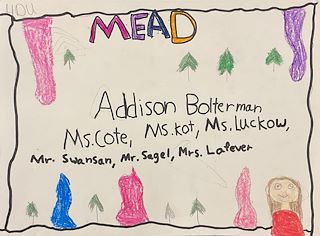 MEAD
Addison Bolterman
Ms. Cote, Ms. Kot, Ms. Luckow,
Mr. Swansan, Mr. Sagel, Mrs. Lafever